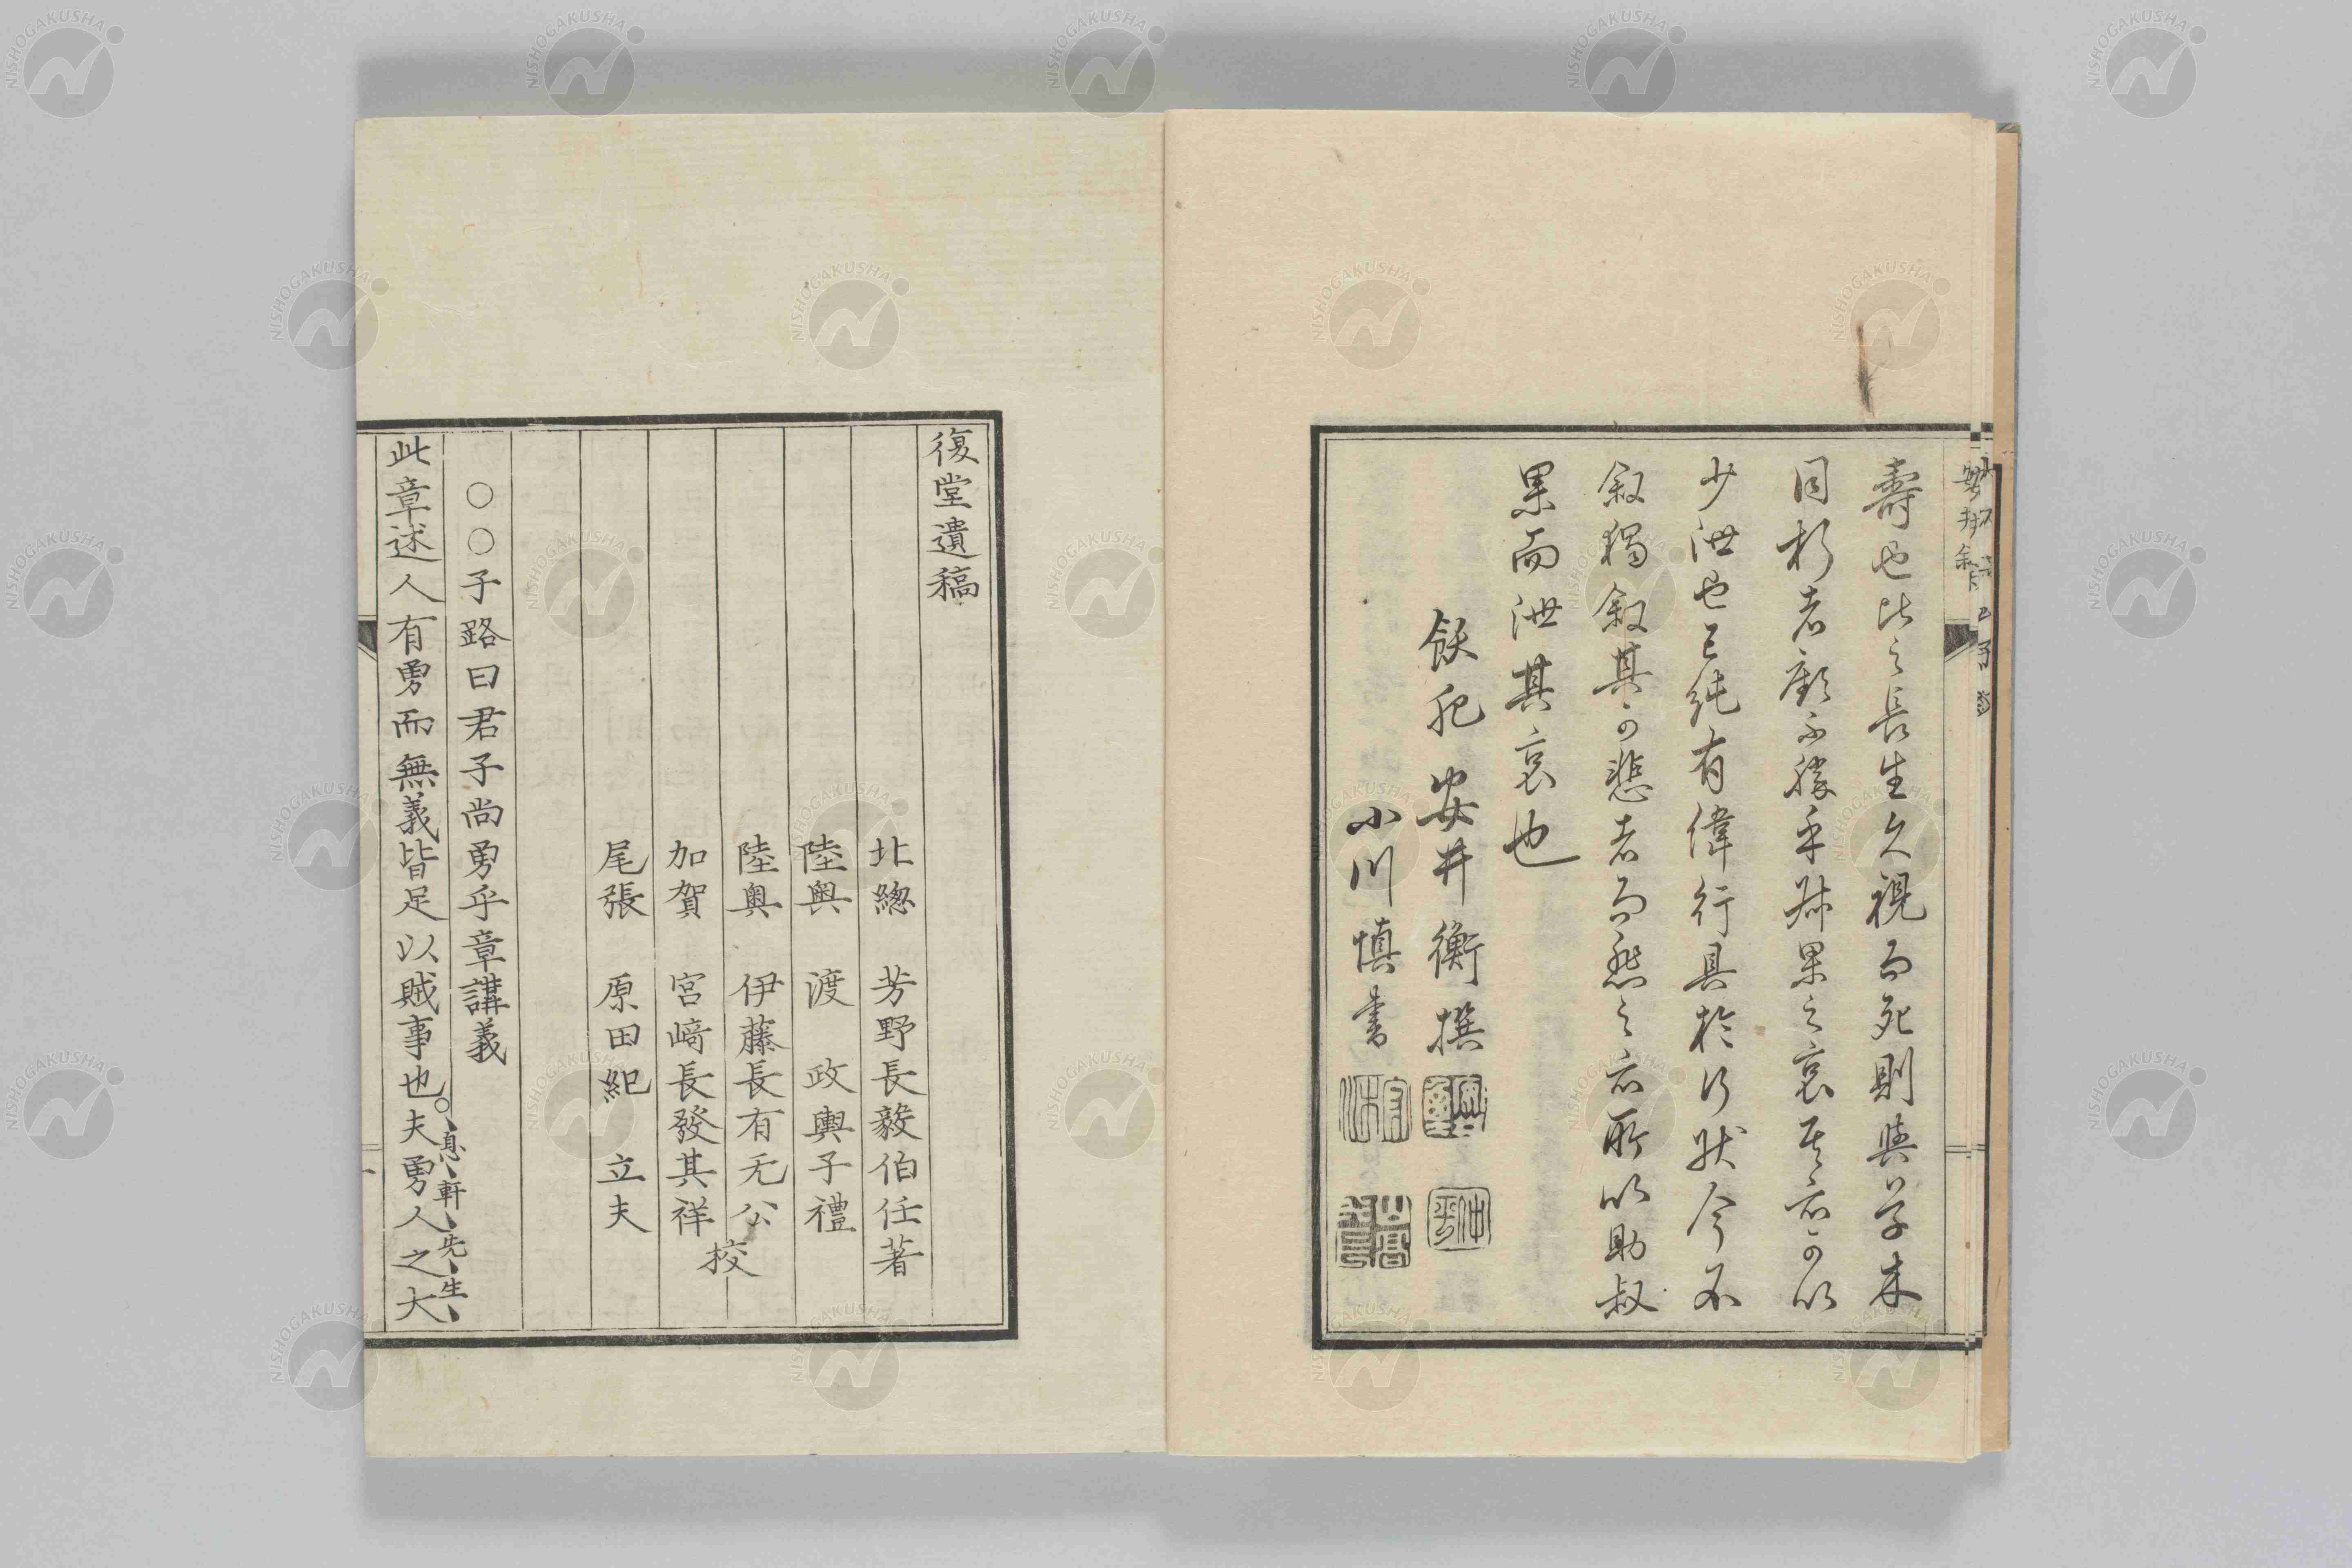 壽也比之長生久視而死則與草木
同朽者厥不勝乎叔果之哀其亦可以
少泄也已純有偉行具於行狀今不
叙獨叙其可悲者而愁之亦所以助叔
果而泄其哀也
飫肥 安井衡撰
小川慎書
復堂遺稿
北總 芳野長毅伯任著
陸奧 渡 政輿子禮
陸奧 伊藤長有无公
加賀 宮﨑長發其祥
尾張 原田紀 立夫
校
○○子路曰君子尚勇乎章講義
此章述人有勇而無義皆足以賊事也夫勇人之大
息軒先生
NISHOGAKUSHA